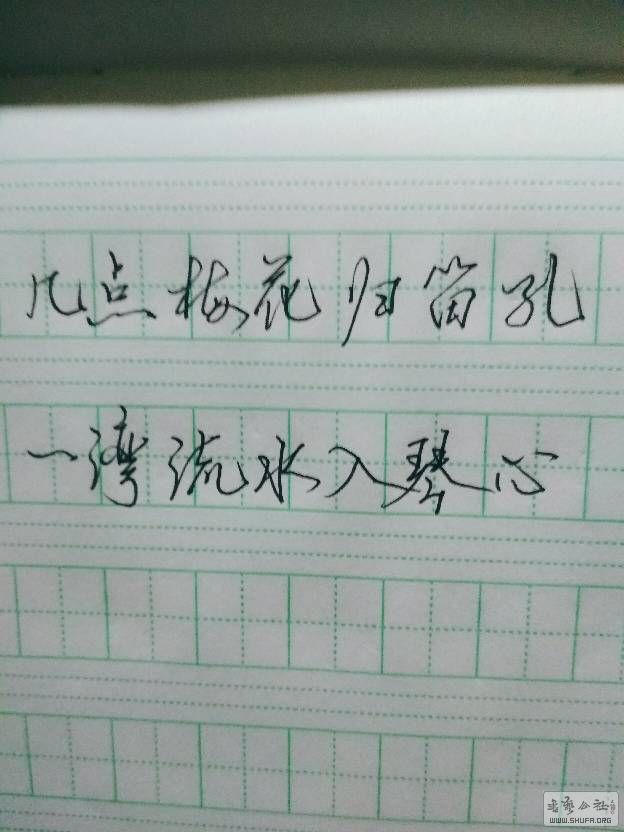 几点梅花归笛孔
一湾流水入琴心
WWW.SHUFA.ORG